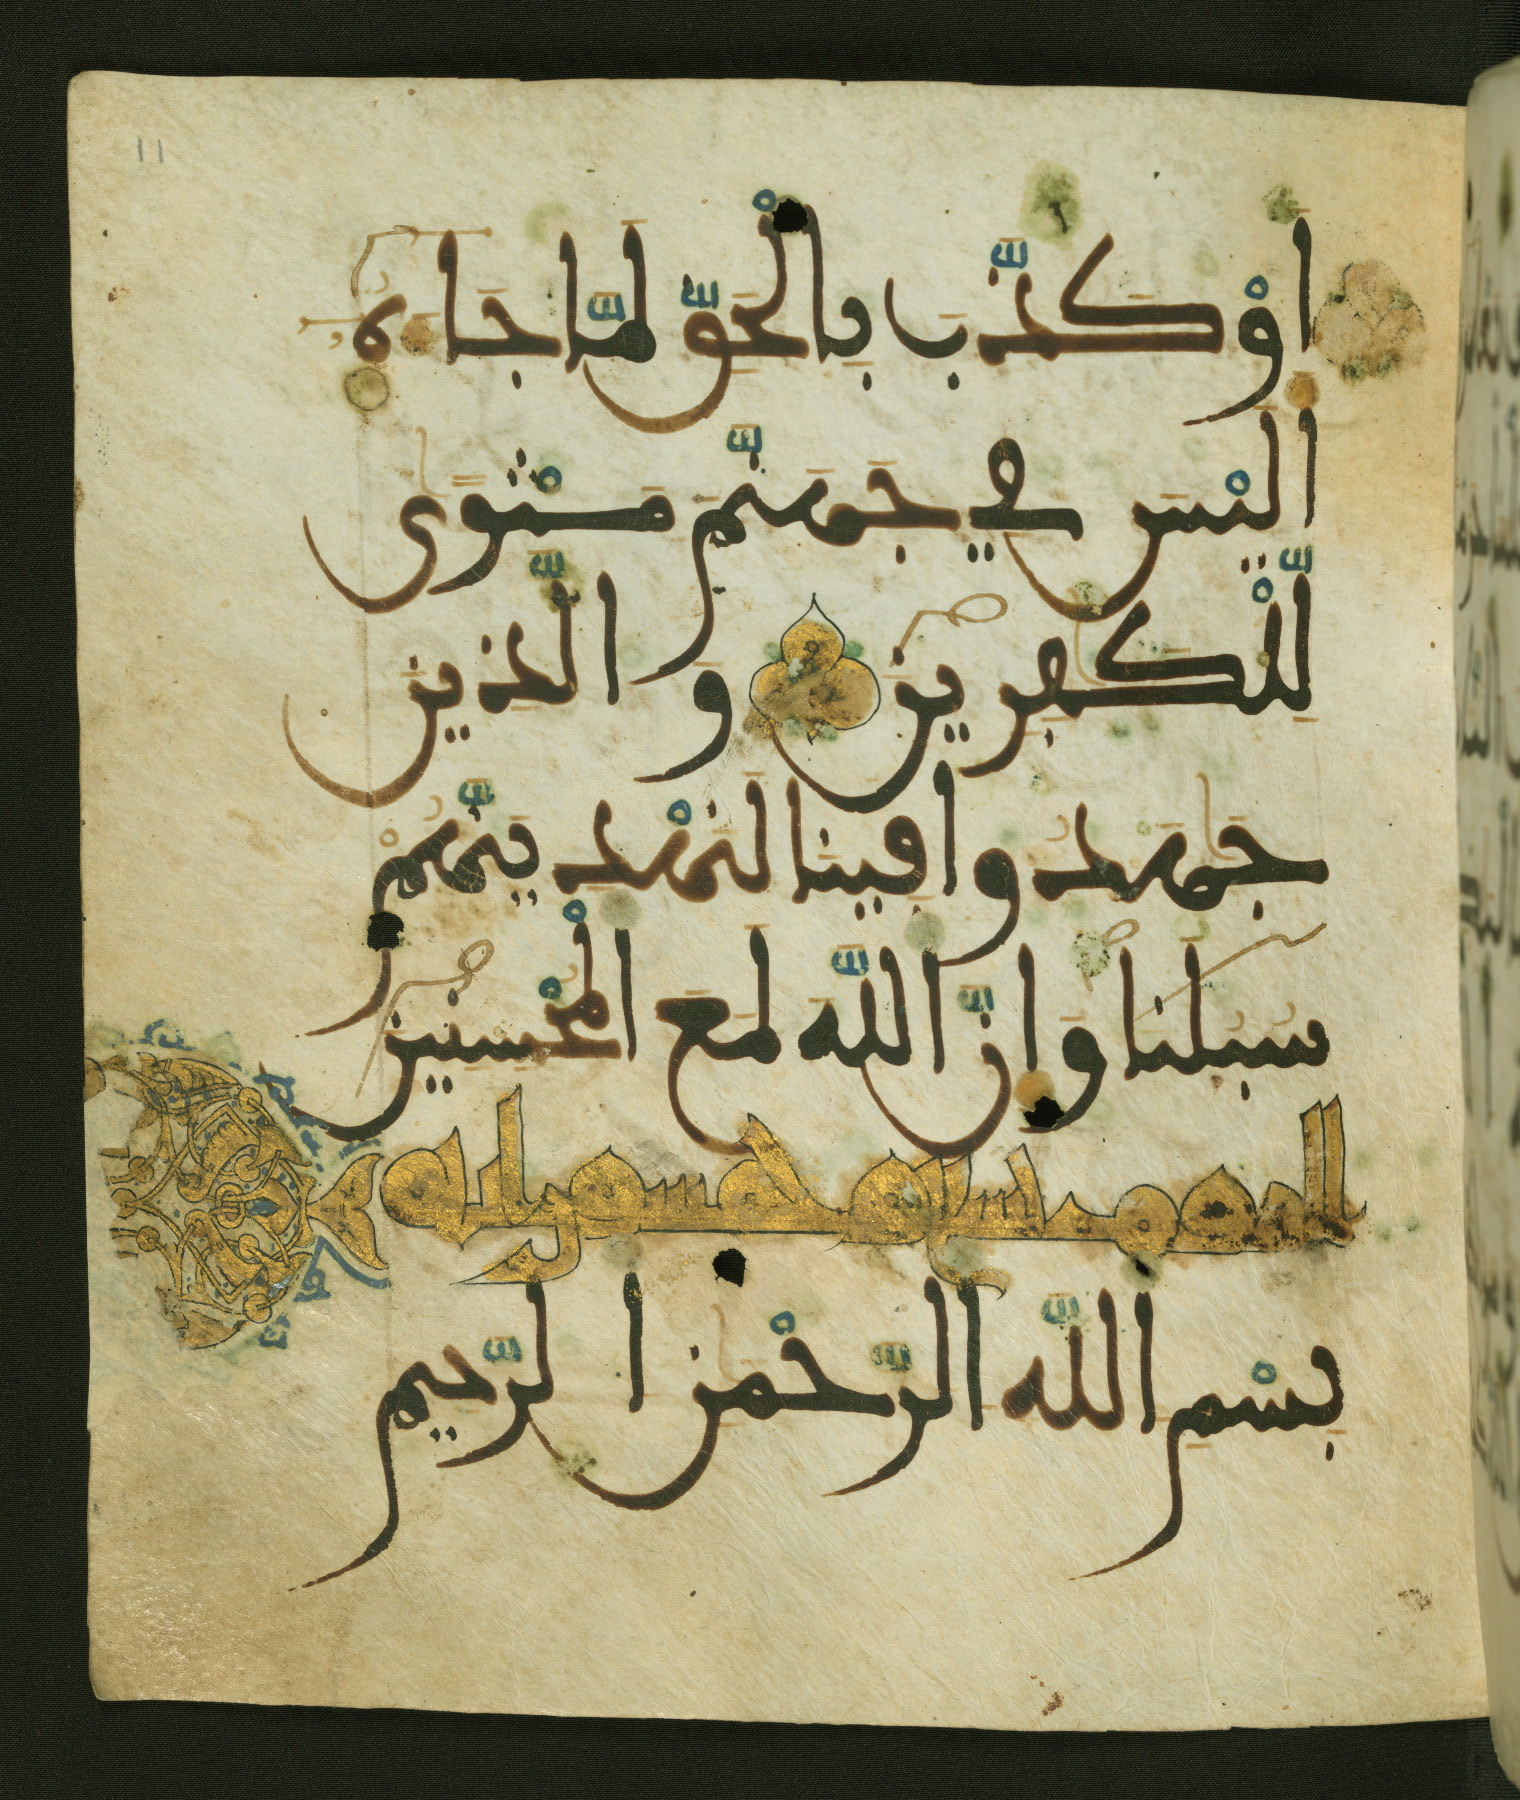 11
أَوْ كَذَّبَ بِالْحَقِّ لَمَّا جَاءَهُ
أَلَيْسَ فِي جَهَنَّمَ مَثْوًى
لِّلْكَفِرِينَ وَالَّذِينَ
جَهَدُوا فِينَا لَنَهْدِيَنَّهُمْ
سُبُلَنَا وَإِنَّ اللَّهَ لَمَعَ الْمُحْسِنِينَ
الروم تسع وخمسون اية
بِسْمِ اللَّهِ الرَّحْمَنِ الرَّحِيمِ